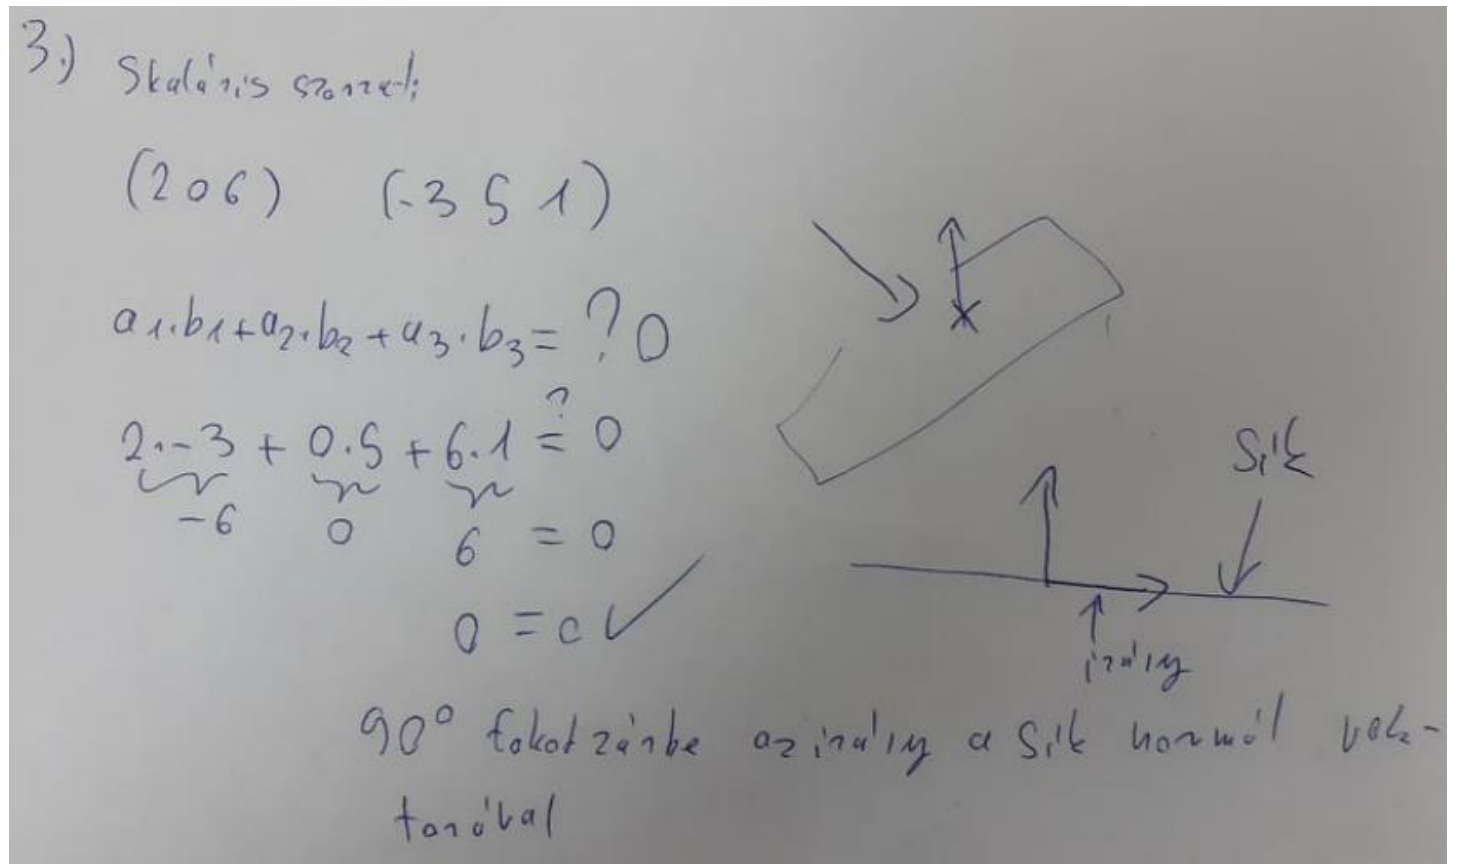 3.) Skaláris szorzat:
(2 0 6) (-3 5 1)
a1.b1+a2.b2+a3.b3=?0
2.-3 + 0.5 + 6.1 ?= 0
-6 0 6 = 0
0 = 0 ✓
Sík
irány
90° fokot zárbe az irány a sík normál vek-
torával